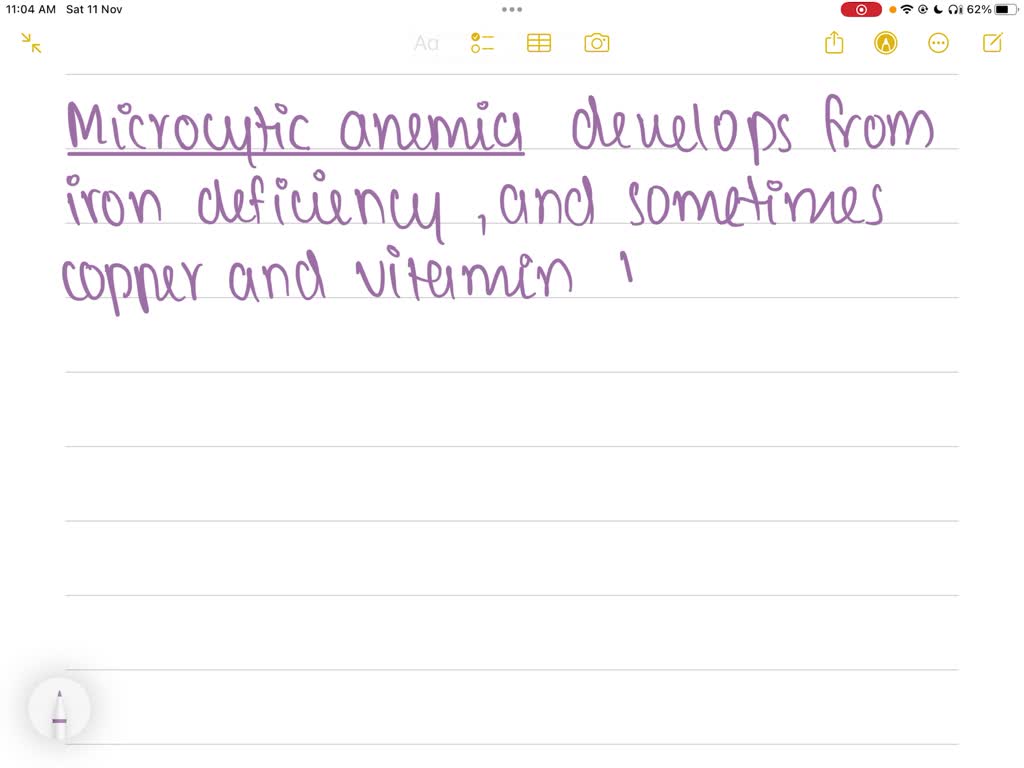 11:04 AM Sat 11 Nov
62%
Aa
Microcytic anemia develops from
iron deficiency, and sometimes
copper and vitamin